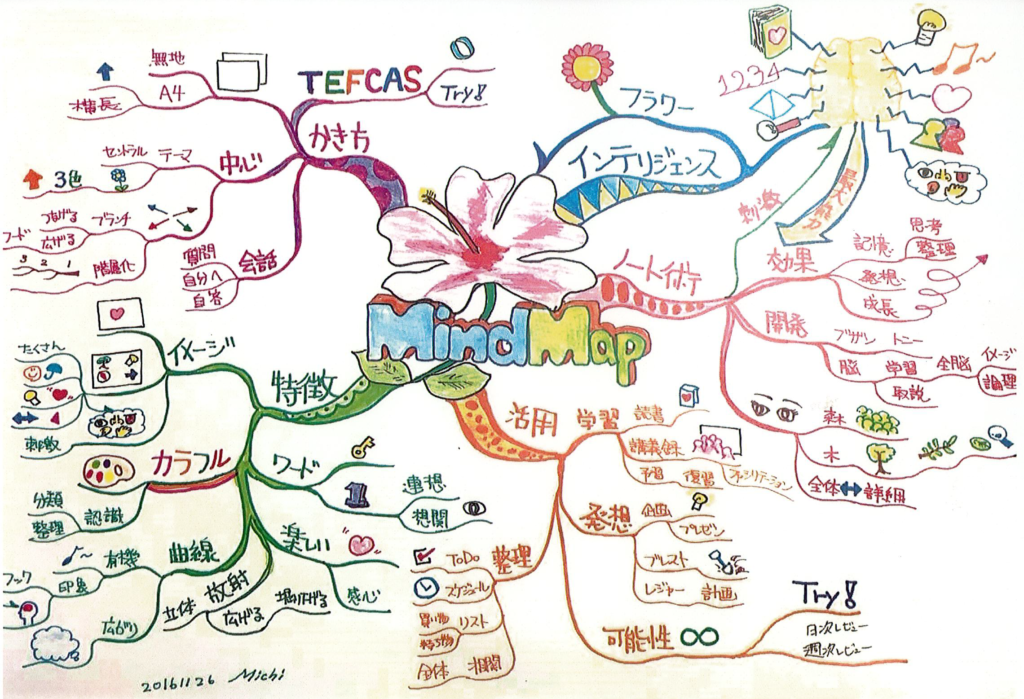 MindMap
TEFCAS
Try!
かき方
無地
A4
横長
中心
セントラル テーマ
3色
つなげる ブランチ
広げる
ワード
3 2 1 階層化
会話
質問
自分へ
自答
フラワー
インテリジェンス
1234
刺激
ノート術
効果
記憶
思考
整理
発想
成長
開発
ブザン トニー
脳
学習
全脳
イメージ
論理
取説
森
木
全体
活用
学習
読書
講義録
予習
復習
発想
企画
プレゼン
ブレスト
レジャー
計画
整理
ToDo
スケジュール
買い物
リスト
持ち物
全体
相関
可能性
Try!
日次レビュー
週次レビュー
特徴
イメージ
たくさん
刺激
カラフル
分類
整理
認識
ワード
1
連想
想関
楽しい
感心
曲線
有機
フック
印象
広がり
放射
立体
広げる
20161126 Michi